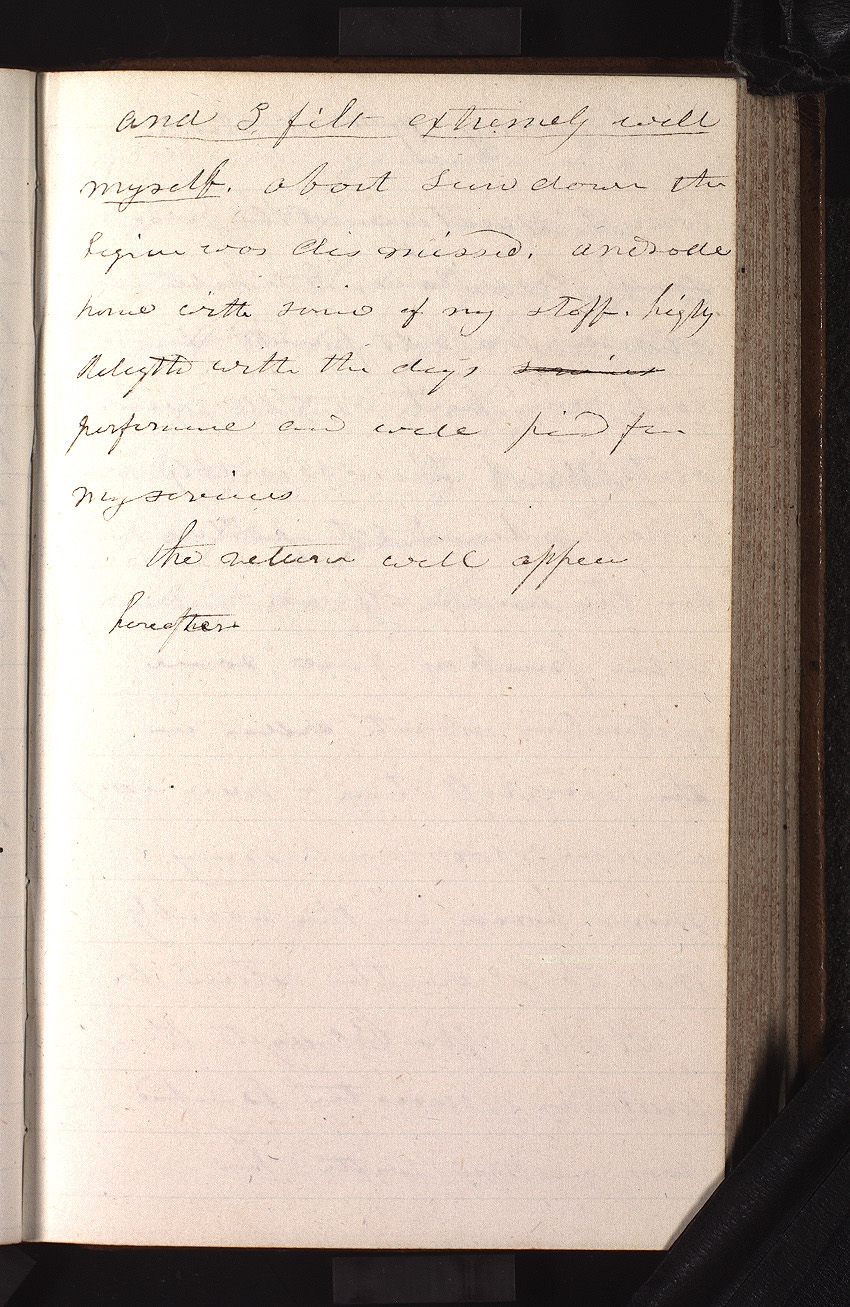 and I felt extremely well
myself. about Sun down the
Legion was dismissed. and rode
home with some of my staff. highly
delighted with the days services
performance and well paid for
my services
the return will appear
hereafter